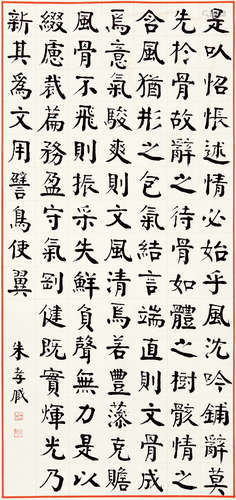 是㕥怊悵述情必始乎風沈吟鋪辭莫
先扵骨故辭之待骨如體之樹骸情之
含風猶形之包氣結言端直則文骨成
焉意氣駿爽則文風清焉若豐藻克贍
風骨不飛則振采失鮮負聲無力是以
綴慮裁篇務盈守氣剛健既實輝光乃
新其爲文用譬鳥使翼
朱孝臧